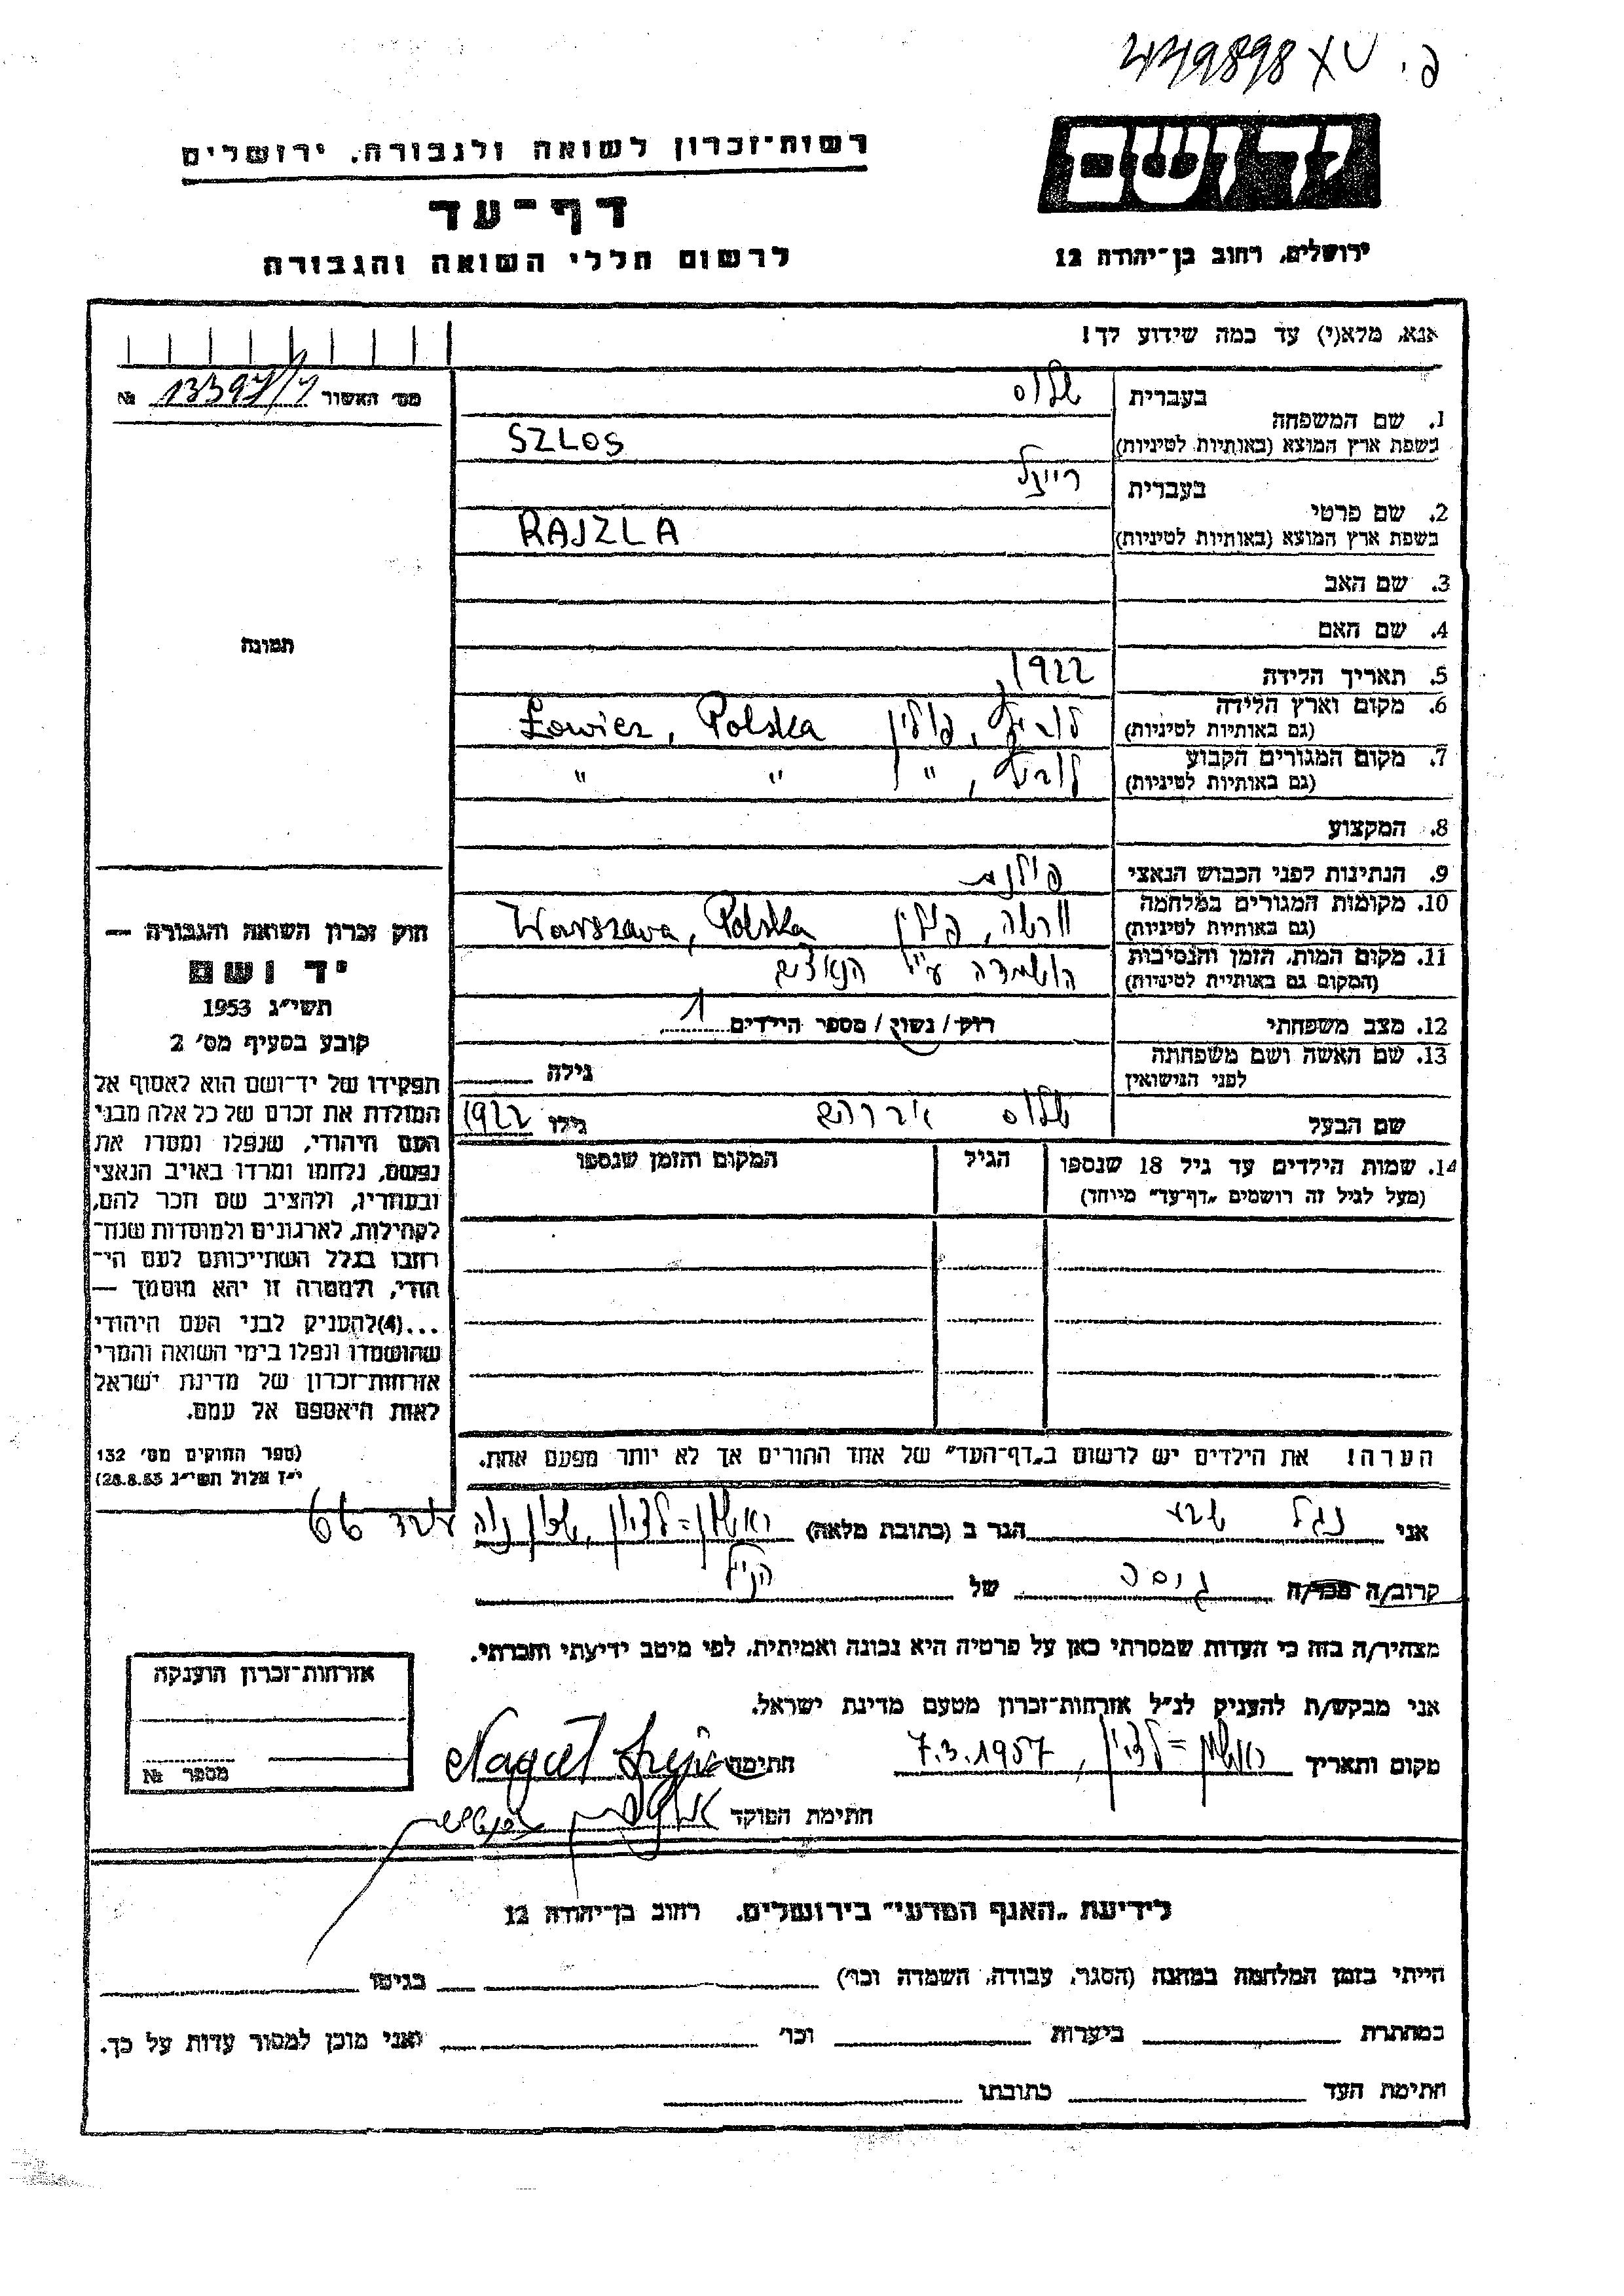 רשות־זכרון לשואה ולגבורה, ירושלים
דף־עד
לרשום חללי השואה והגבורה
יד ושם
ירושלים, רחוב בן־יהודה 12
אנא, מלא(י) עד כמה שידוע לך!
מס׳ האשור №
1. שם המשפחה
בעברית שלוס
בשפת ארץ המוצא (באותיות לטיניות) SZLOS
2. שם פרטי
בעברית רייזל
בשפת ארץ המוצא (באותיות לטיניות) RAJZLA
3. שם האב
4. שם האם
תמונה
5. תאריך הלידה 1922
6. מקום וארץ הלידה
(גם באותיות לטיניות) לוביץ, פולין Łowicz, Polska
7. מקום המגורים הקבוע
(גם באותיות לטיניות) לוביץ, " " "
8. המקצוע
9. הנתינות לפני הכבוש הנאצי פולנית
10. מקומות המגורים במלחמה
(גם באותיות לטיניות) וורשה, פולין Warszawa, Polska
11. מקום המות, הזמן והנסיבות
(המקום גם באותיית לטיניות) הושמדה ע״י הנאצים
12. מצב משפחתי רוק/נשוי/מספר הילדים 1
13. שם האשה ושם משפחתה
לפני הנישואין גילה
שם הבעל שלוס אברהם גילו 1922
14. שמות הילדים עד גיל 18 שנספו הגיל המקום והזמן שנספו
(מעל לגיל זה רושמים „דף־עד" מיוחד)
הערה! את הילדים יש לרשום ב„דף־העד" של אחד ההורים אך לא יותר מפעם אחת.
חוק זכרון השואה והגבורה —
יד ושם
תשי״ג 1953
קובע בסעיף מס׳ 2
תפקידו של יד־ושם הוא לאסוף אל
המולדת את זכרם של כל אלה מבני
העם היהודי, שנפלו ומסרו את
נפשם, נלחמו ומרדו באויב הנאצי
ובעוזריו, ולהציב שם וזכר להם,
לקהילות, לארגונים ולמוסדות שנח־
רחבו בגלל השתייכותם לעם הי־
הודי, ולמטרה זו יהא מוסמך —
...(4)להעניק לבני העם היהודי
שהושמדו ונפלו בימי השואה והמרי
אזרחות־זכרון של מדינת ישראל
לאות היאספם אל עמם.
(ספר החוקים מס׳ 132
י״ז אלול תשי״ג 28.8.53)
אני נגל הגר ב (כתובת מלאה) ראשון=לציון, שכון 66
קרוב/ה מכר/ה גיסה של הנ״ל
מצהיר/ה בזה כי העדות שמסרתי כאן על פרטיה היא נכונה ואמיתית, לפי מיטב ידיעתי והכרתי.
אני מבקש/ת להעניק לנ״ל אזרחות־זכרון מטעם מדינת ישראל.
מקום ותאריך ראשון=לציון, 7.3.1957 חתימה
חתימת הפוקד
אזרחות־זכרון הוענקה
מספר №
לידיעת „האגף המדעי" בירושלים, רחוב בן־יהודה 12
הייתי בזמן המלחמה במחנה (הסגר, עבודה, השמדה וכו׳) בגיטו
במחתרת ביערות וכו׳ ואני מוכן למסור עדות על כך.
חתימת העד כתובתו